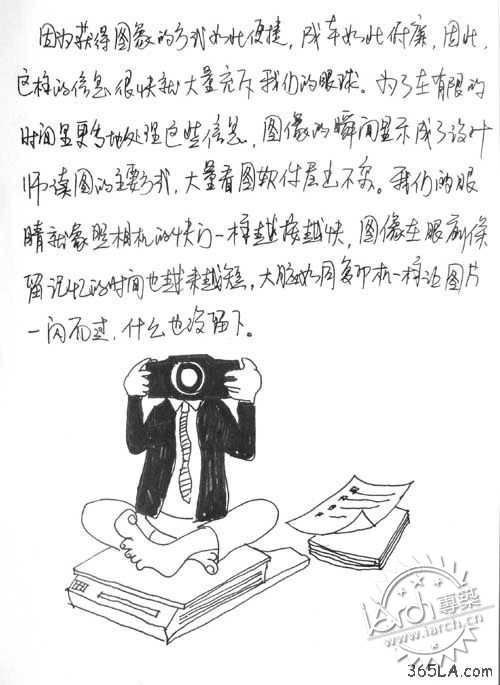 因为获得图象的方式如此便捷，成本如此低廉，因此，
这样的信息很快就大量充斥我们的眼球。为了在有限的
时间里更多地处理这些信息，图像的瞬间显示成了设计
师读图的主要方式，大量看图软件层出不穷。我们的眼
睛就象照相机的快门一样越按越快，图像在眼前停
留记忆的时间也越来越短，大脑如同复印机一样让图片
一闪而过，什么也没留下。
iarch 專築
www.iarch.cn
365LA.com